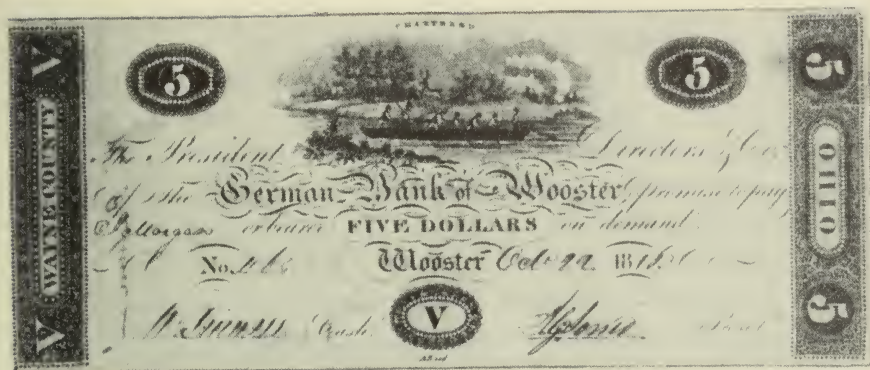 CHARTERED
V WAYNE COUNTY V
5 5
5 OHIO 5
The President Directors & Co.
of the German Bank of Wooster promise to pay
or bearer FIVE DOLLARS on demand
No. Wooster Oct. 22 18
Cash. V Pres.